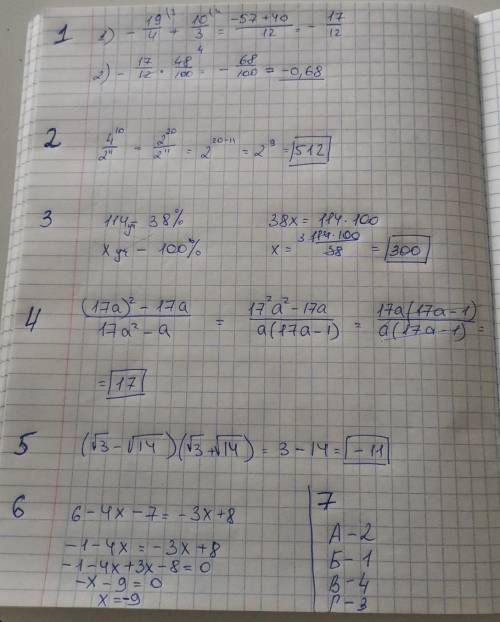 1 1) - 19/4 + 10/3 = -57+40/12 = - 17/12
2) - 17/12 · 48/100 = - 68/100 = -0,68
2 4^10/2^11 = 2^20/2^11 = 2^20-11 = 2^9 = 512
3 114 уч - 38% 38x = 114·100
x уч - 100% x = 114·100/38 = 300
4 (17a)²-17a/17a²-a = 17²a²-17a/a(17a-1) = 17a(17a-1)/a(17a-1) =
= 17
5 (√3-√14)(√3+√14) = 3-14 = -11
6 6-4x-7=-3x+8
-1-4x=-3x+8
-1-4x+3x-8=0
-x-9=0
x=-9
7
А-2
Б-1
В-4
Г-3